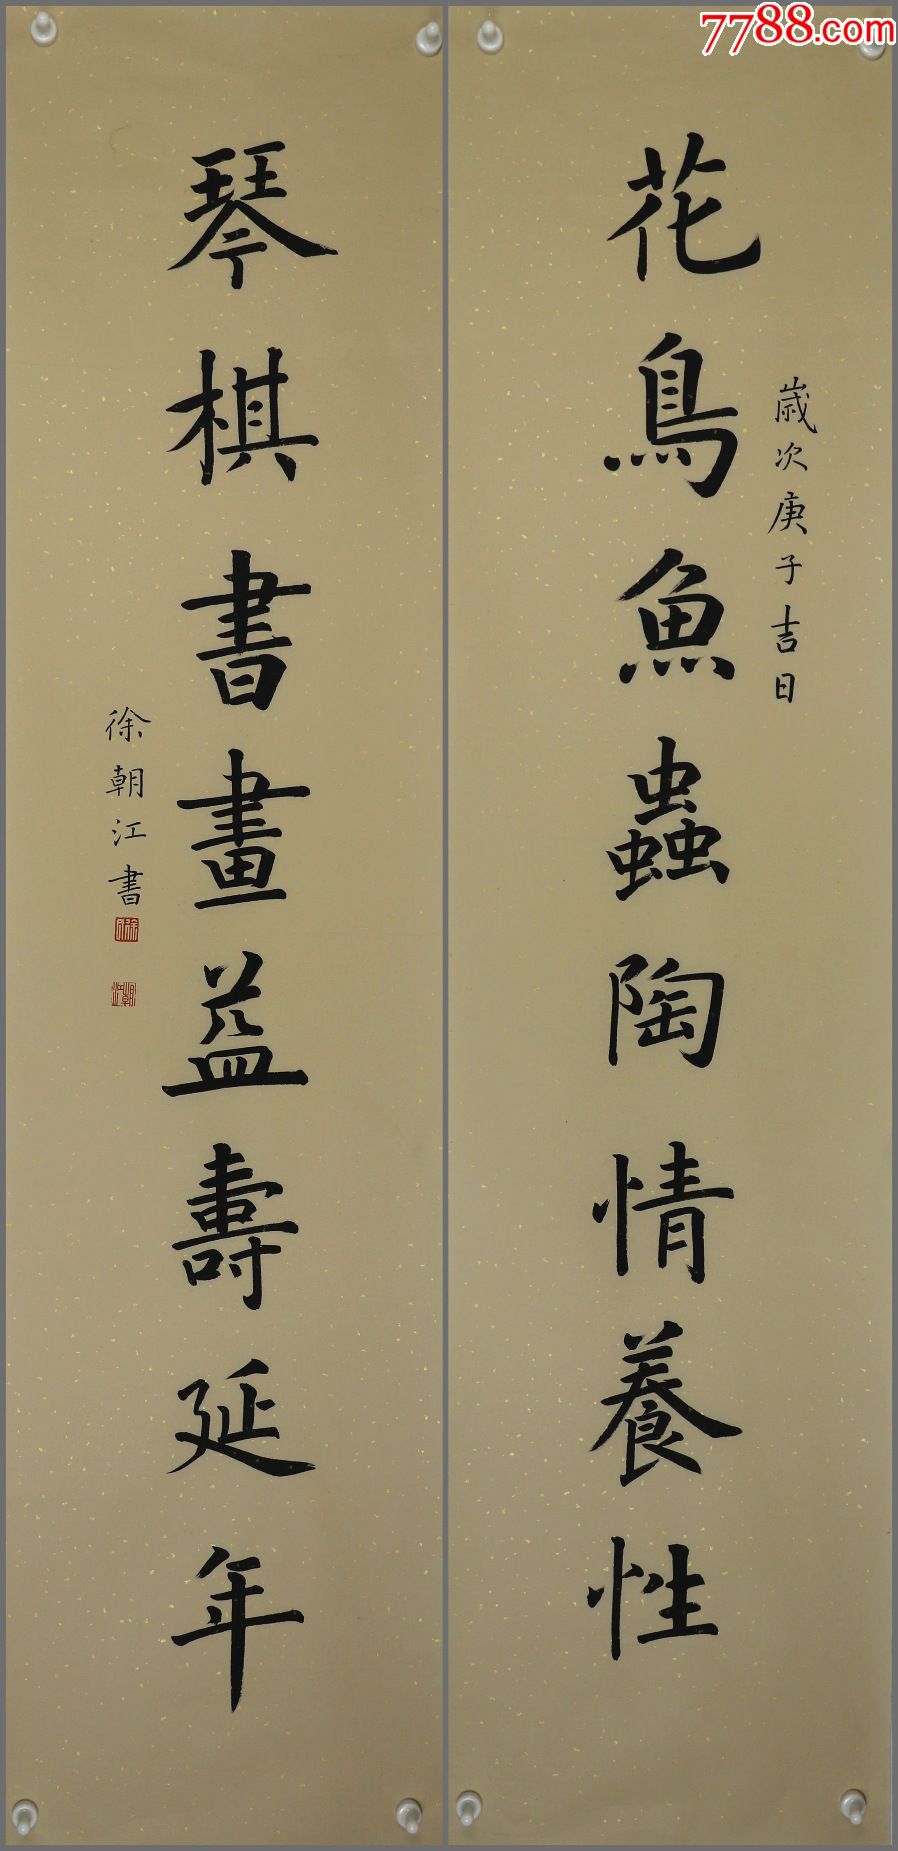 7788.com
歲次庚子吉日
花鳥魚蟲陶情養性
琴棋書畫益壽延年
徐朝江書